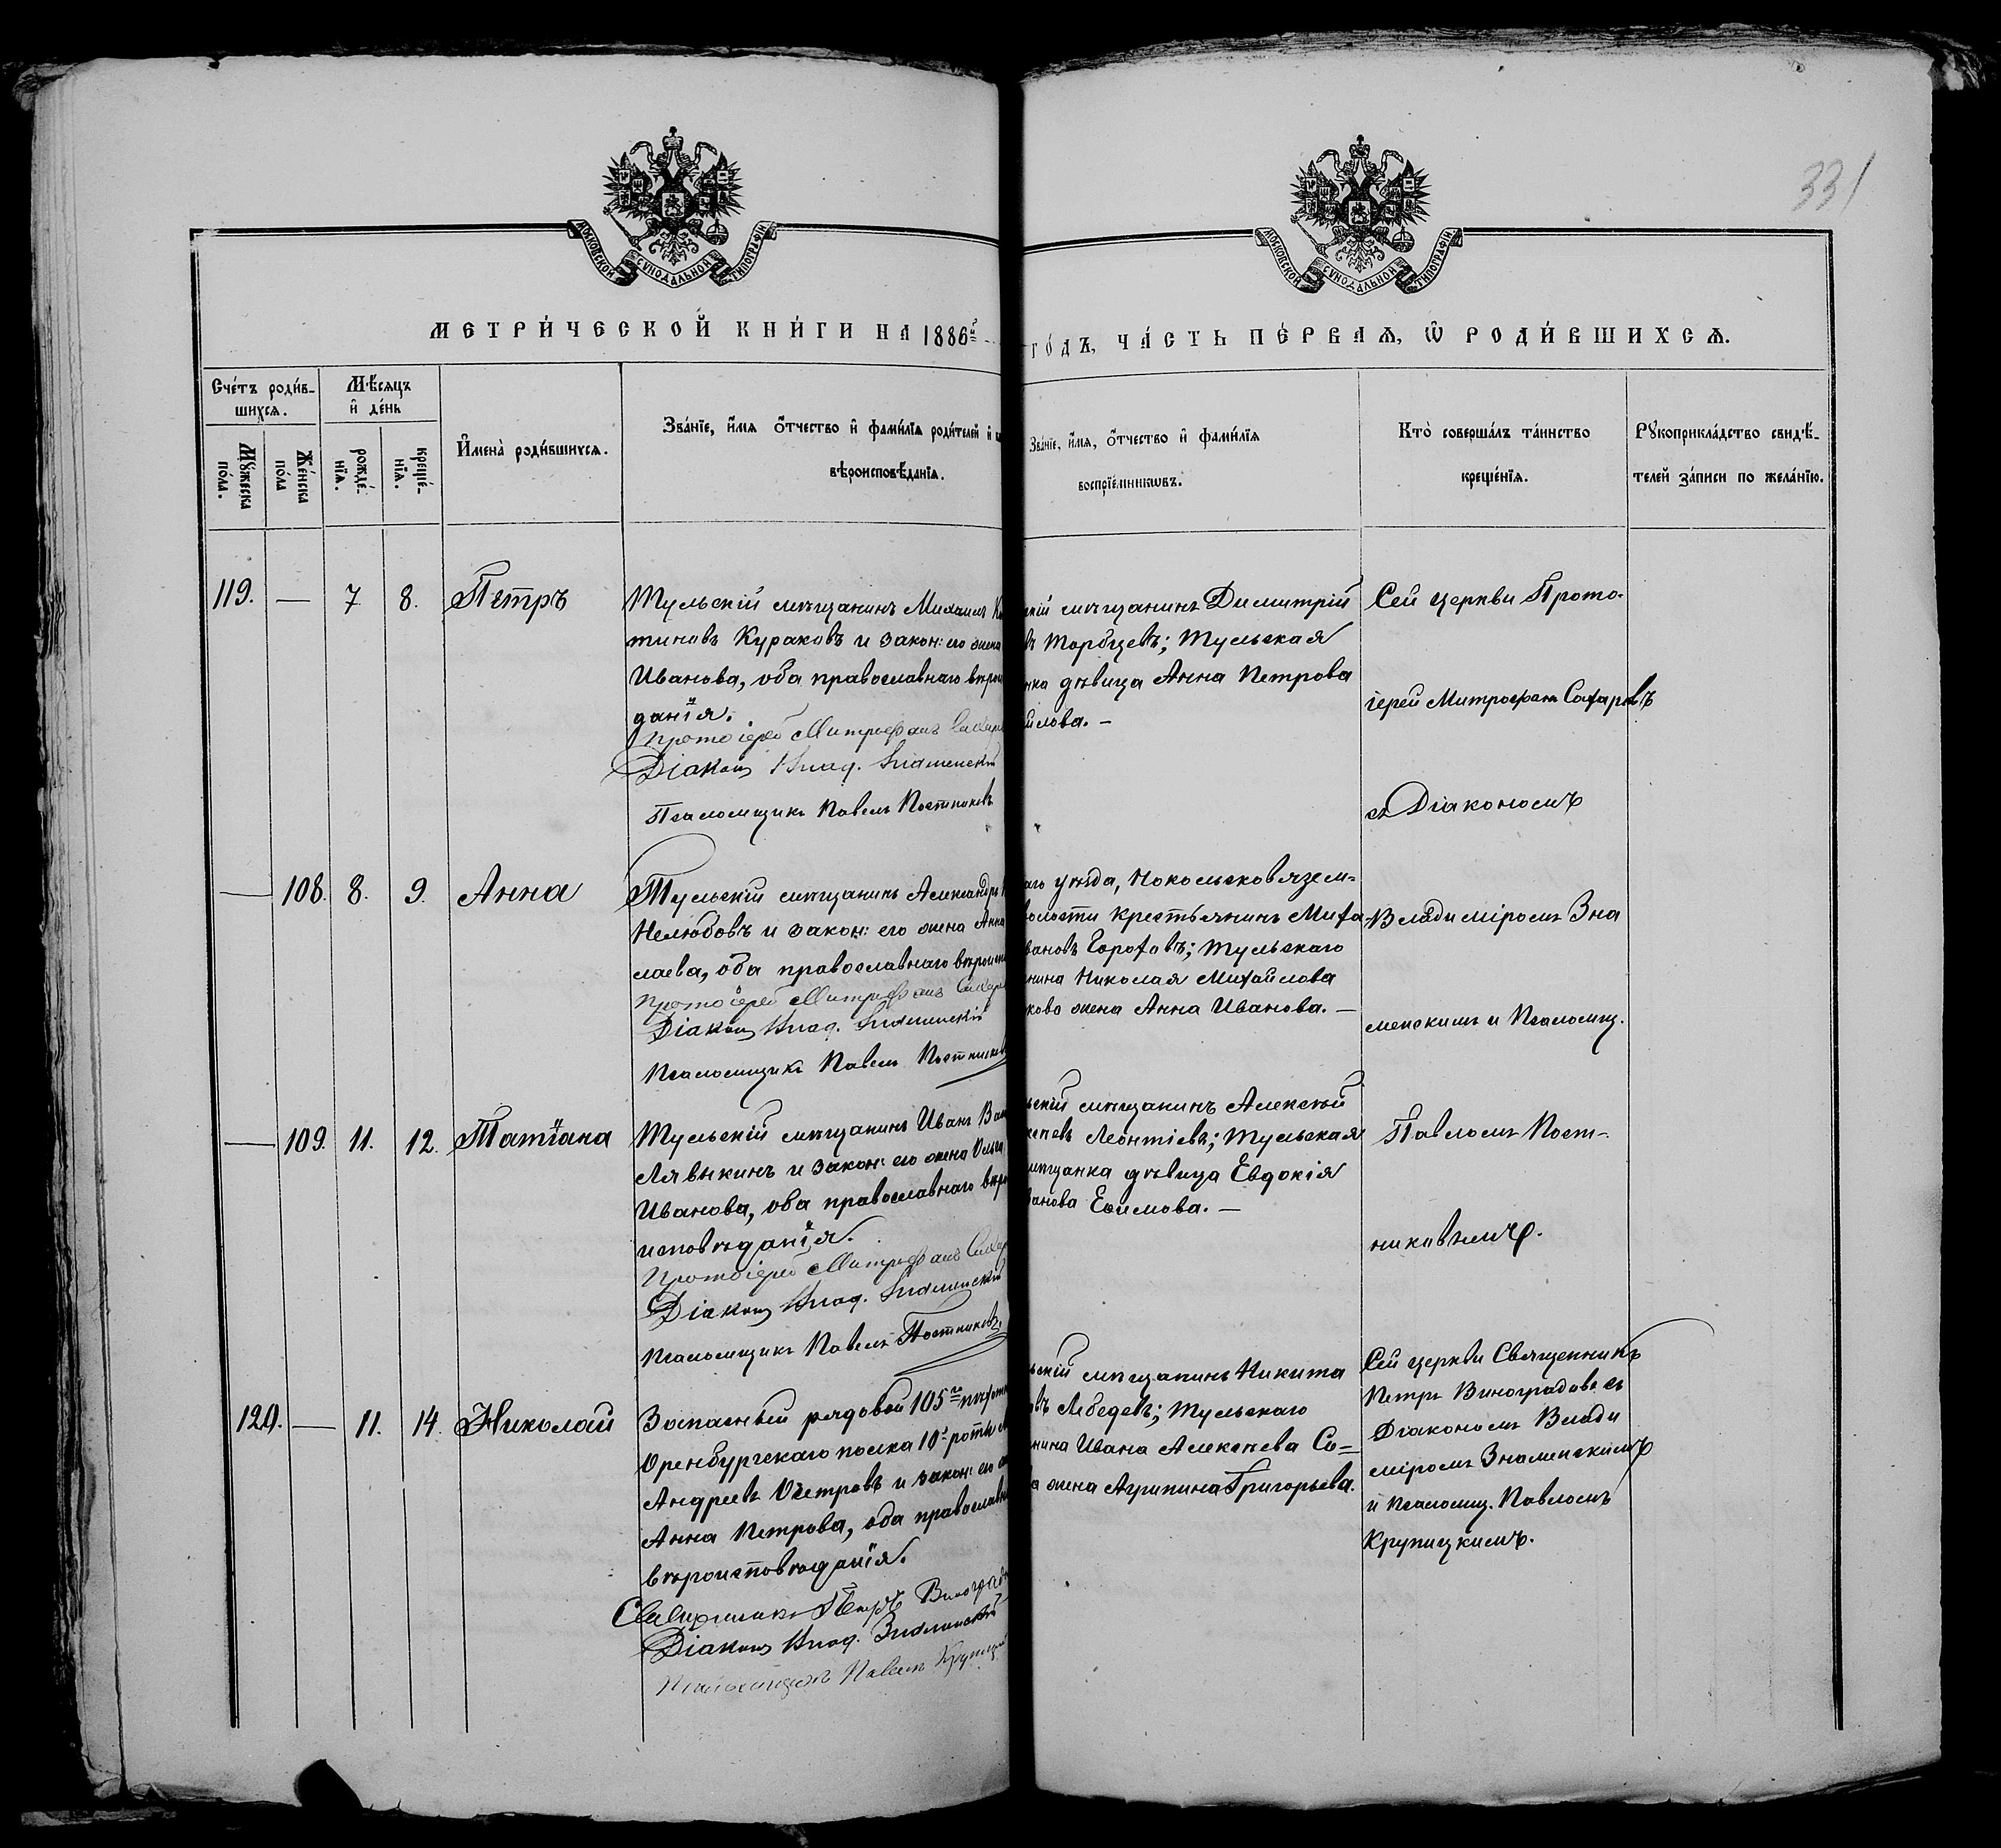 331
МОСКОВСКОЙ СѴНОДАЛЬНОЙ ТИПОГРАФІИ
МОСКОВСКОЙ СѴНОДАЛЬНОЙ ТИПОГРАФІИ
МЕТРИ́ЧЕСКОЙ КНИ́ГИ НА 1886й
ГО́ДЪ, ЧА́СТЬ ПЕ́РВАѦ, Ѡ РОДИ́ВШИХСѦ.
Сче́тъ роди́в-
шихсѧ.
Мѣ́сѧцъ
и҆ де́нь
Мꙋ́жеска
по́ла.
Же́нска
по́ла
рожде́-
нїѧ.
креще́-
нїѧ.
И҆мена̀ роди́вшихсѧ.
Зва́нїе, и҆́мѧ ѻ҆́тчество и҆ фами́лїѧ роди́телей и҆
вѣроисповѣ́данїѧ.
Зва́нїе, и҆́мѧ, ѻ҆́тчество и҆ фами́лїѧ
воспрїе́мникѡвъ.
Кто̀ соверша́лъ та́инство
креще́нїѧ.
Рꙋкоприкла́дство свидѣ́-
телей за́писи по жела́нїю.
119. — 7 8. Петръ
Тульскій мѣщанинъ Михаилъ
тиновъ Кураковъ и закон: его жена
Иванова, оба православнаго вѣрои
данія.
Протоіерей Митрофанъ Сахаро
Діаконъ Влад. Знаменскій
Псаломщикъ Павелъ Постниковъ
кій мѣщанинъ Димитрій
въ Торбцевъ; Тульская
нка дѣвица Анна Петрова
йлова. —
Сей церкви Прото-
іерей Митрофанъ Сахаровъ
съ Діакономъ
— 108. 8. 9. Анна
Тульскій мѣщанинъ Александръ
Нелюбовъ и закон: его жена Анна
лаева, оба православнаго вѣроиспо
Протоіерей Митрофанъ Сахаро
Діаконъ Влад. Знаменскій
Псаломщикъ Павелъ Постников
аго уѣзда,
волости крестьянинъ Миха-
вановъ; Тульскаго
нина Николая Михайлова
кова жена Анна Иванова. —
Владиміромъ Зна
менскимъ и Псаломщ.
— 109. 11. 12. Татіана
Тульскій мѣщанинъ Иванъ Вас
Лявыкинъ и закон: его жена Ольга
Иванова, оба православнаго вѣро
исповѣданія.
Протоіерей Митрофанъ Сахар
Діаконъ Влад. Знаменскій
Псаломщикъ Павелъ Постниковъ
ьскій мѣщанинъ Алексѣй
ксѣевъ Леонтіевъ; Тульская
мѣщанка дѣвица Евдокія
ванова Ефимова. —
Павломъ Пост-
никовымъ.
120. — 11. 14. Николай
Запасный рядовой 105го пѣхотн
Оренбургскаго полка 10й роты
Андреевъ Осетровъ и закон: его
Анна Петрова, оба православн
вѣроисповѣданія.
Священникъ Петръ Виноградо
Діаконъ Влад. Знаменскій
Псаломщикъ Павелъ Крупицкій
ьскій мѣщанинъ Никита
овъ Лебедевъ; Тульскаго
нина Ивана Алексѣева Со=
ва жена Агрипина Григорьева.
Сей церкви Священникъ
Петръ Виноградовъ съ
Діакономъ Влади
міромъ Знаменскимъ
и Псаломщ. Павломъ
Крупицкимъ.